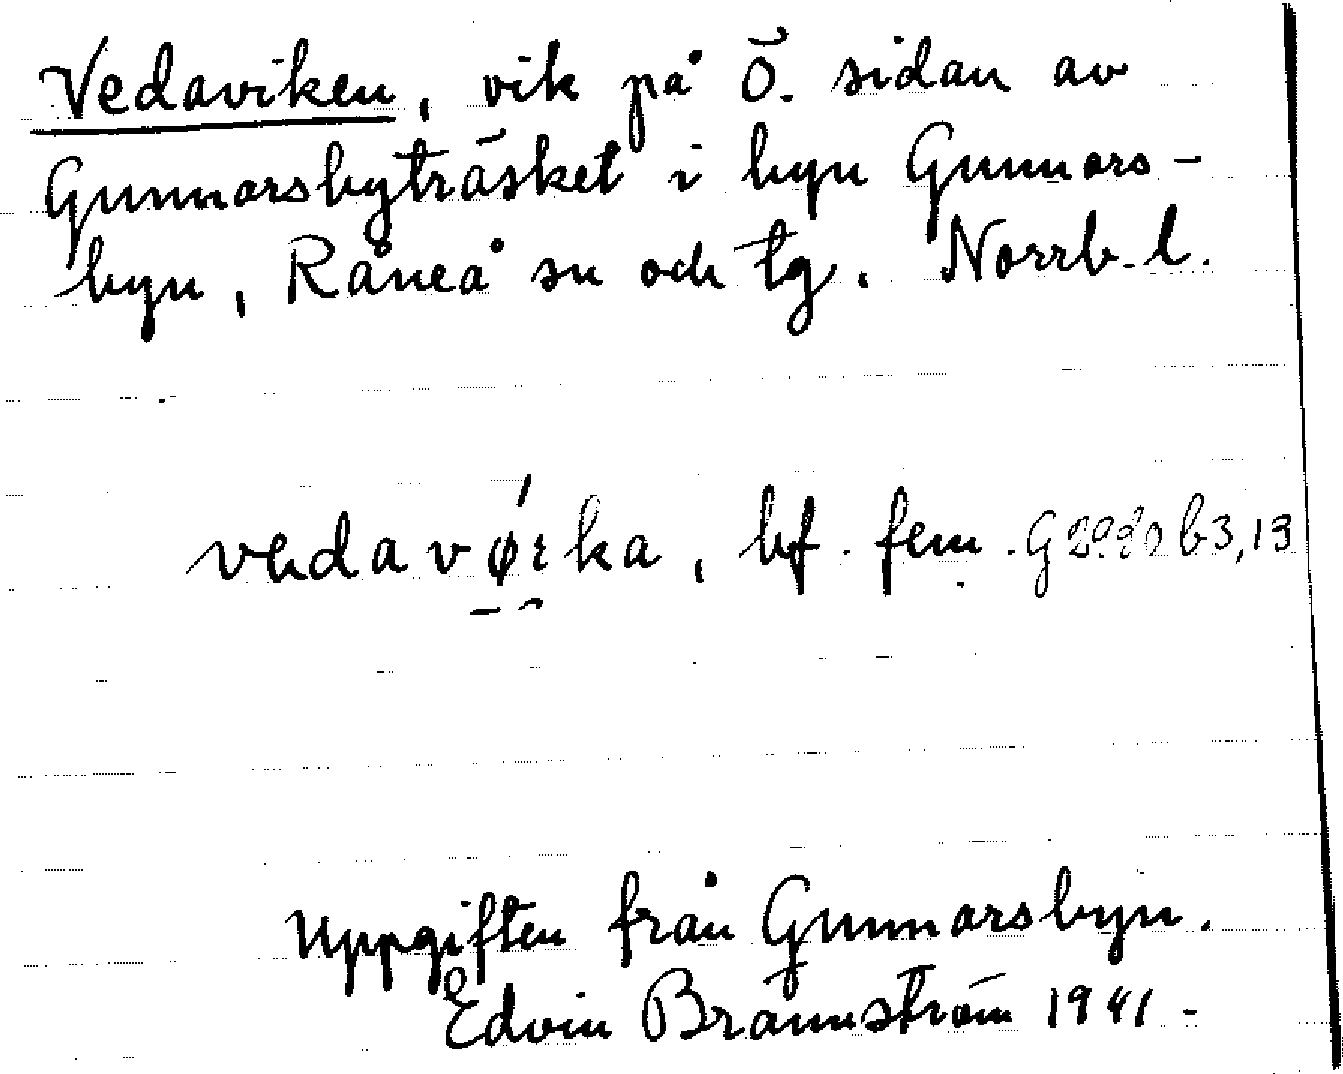 Vedaviken, vik på Ö. sidan av
Gunnarsbyträsket i byn Gunnars-
byn, Råneå sn och tg. Norrb. l.
bf. fem. b3,13
Uppgiften från Gunnarsbyn.
Edvin Brännström 1941 -